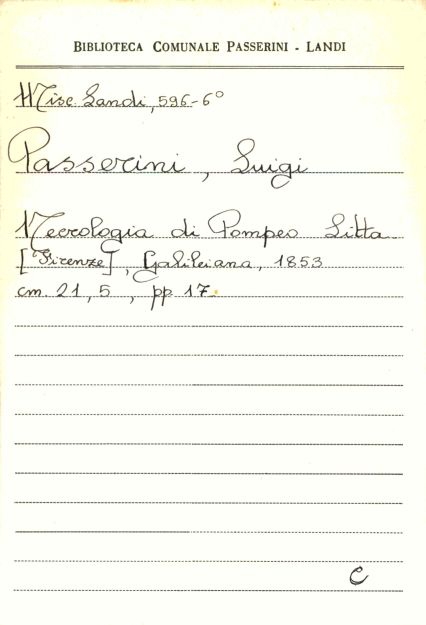 BIBLIOTECA COMUNALE PASSERINI - LANDI
Misc. Landi, 596-6°
Passerini, Luigi
Necrologia di Pompeo Litta
[Firenze], Galileiana, 1853
cm. 21,5, pp. 17.
C